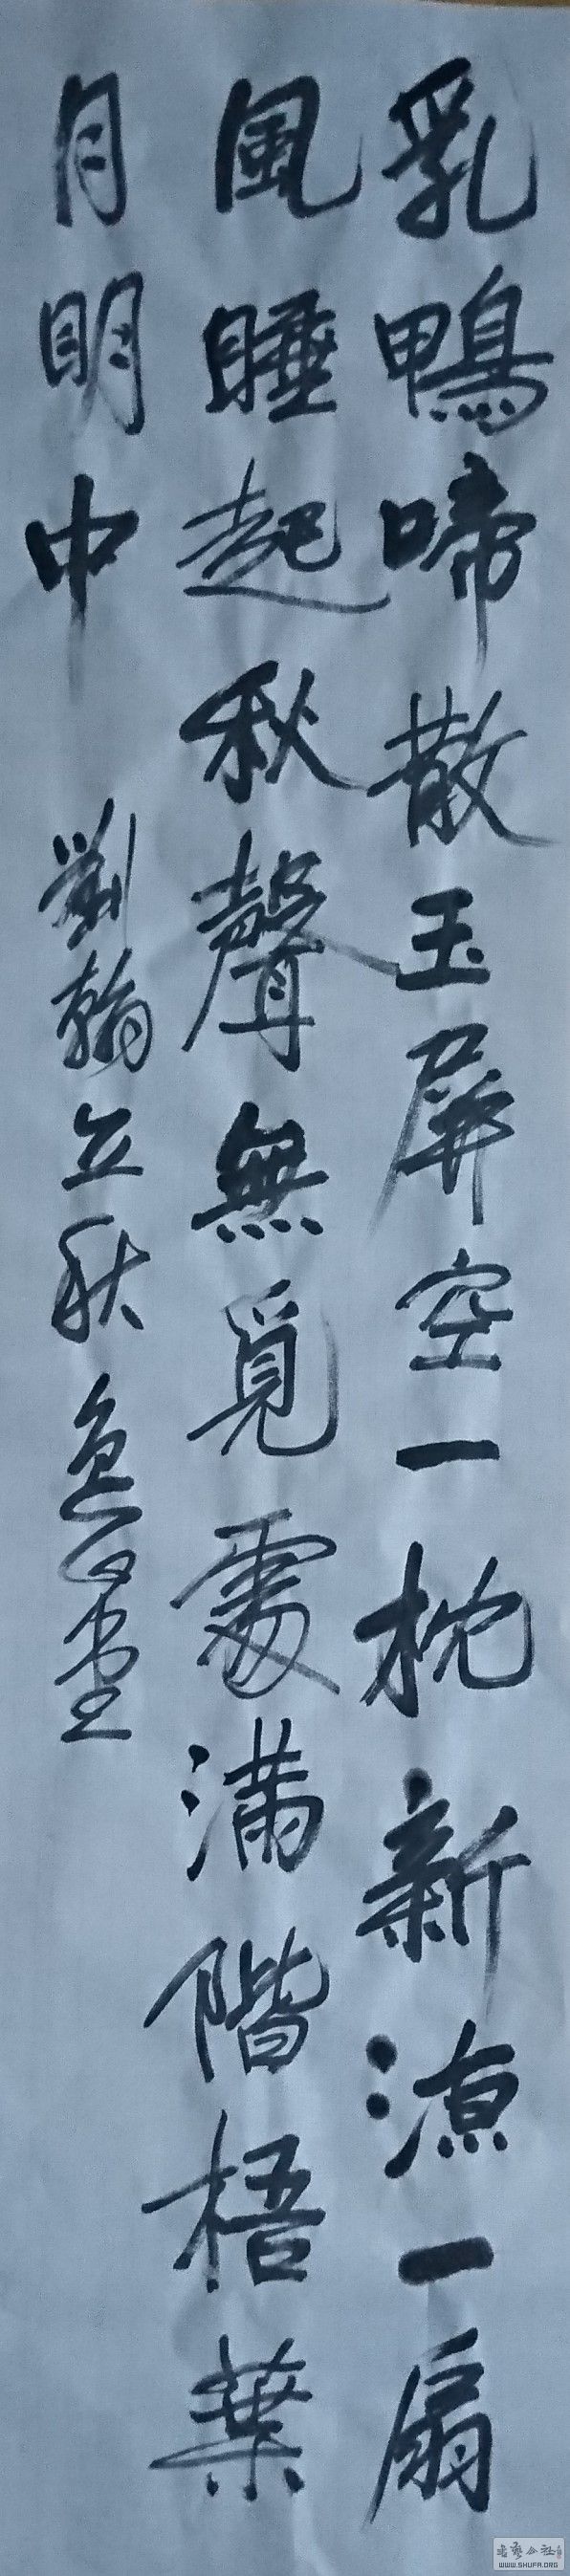 乳鴨啼散玉屏空一枕新涼一扇
風睡起秋聲無覓處滿階梧葉
月明中
劉翰立秋
WWW.SHUFA.ORG